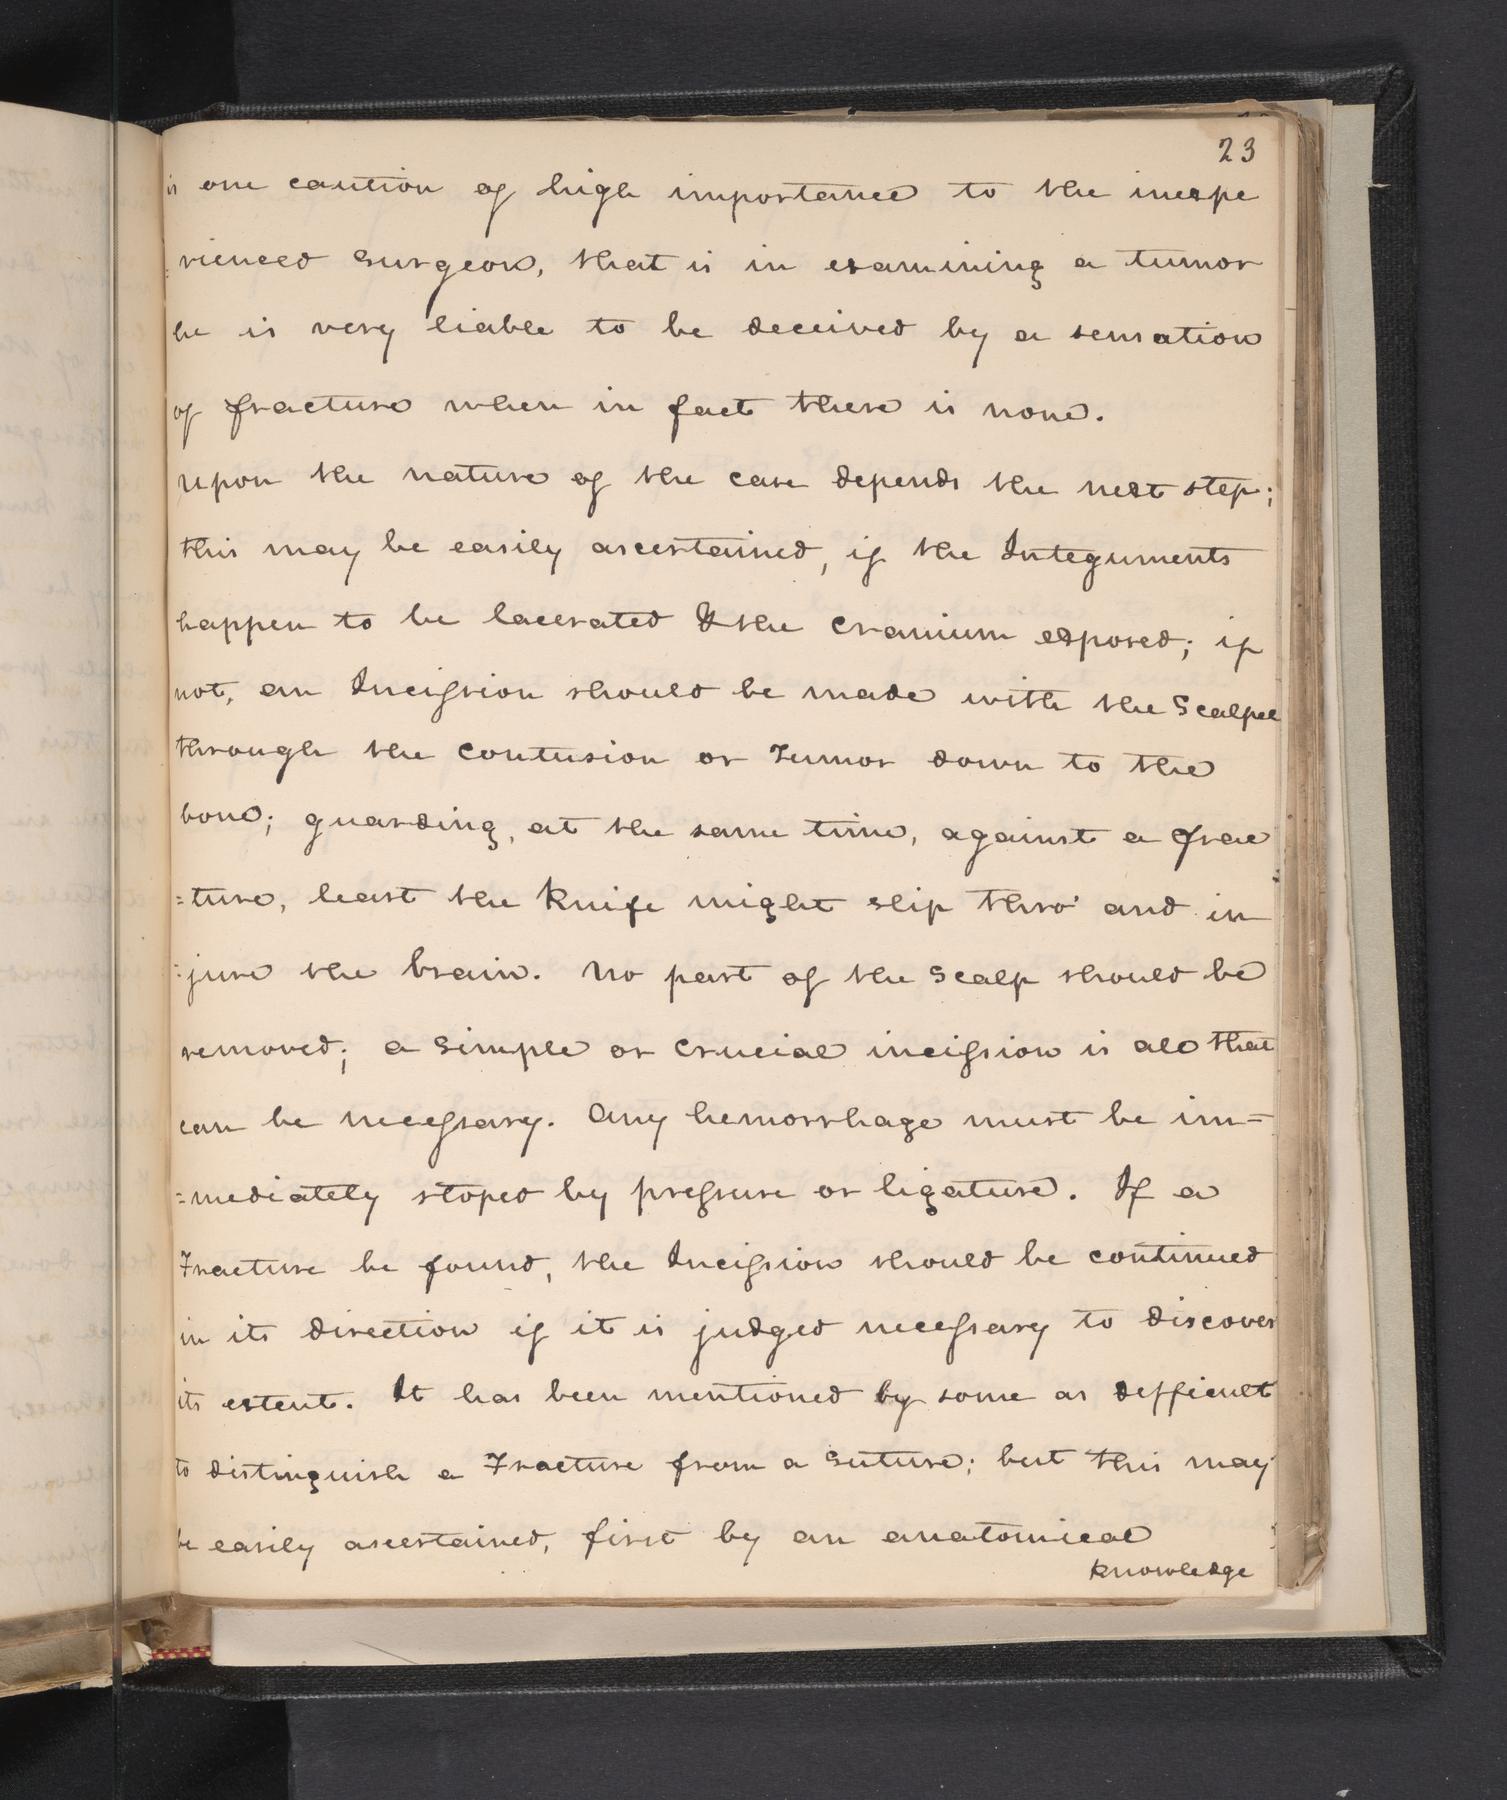 23
is one caution of high importance to the inexpe
=rienced Surgeon, that is in examining a tumor
he is very liable to be deceived by a sensation
of fracture when in fact there is none.
Upon the nature of the case depends the next step;
this may be easily ascertained, if the Integuments
happen to be lacerated & the Cranium exposed; if
not, an Incission should be made with the Scalpel
through the contusion or Tumor down to the
bone; guarding, at the same time, against a frac
=ture, least the Knife might slip thro' and in
=jure the brain. No part of the Scalp should be
removed; a Simple or Crucial incission is all that
can be necessary. Any hemorrhage must be im=
=mediately stoped by pressure or ligature. If a
Fracture be found, the Incission should be continued
in its direction if it is judged necessary to discover
its extent. It has been mentioned by some as defficult
to distinguish a Fracture from a Suture; but this may
be easily ascertained, first by an anatomical
Knowledge